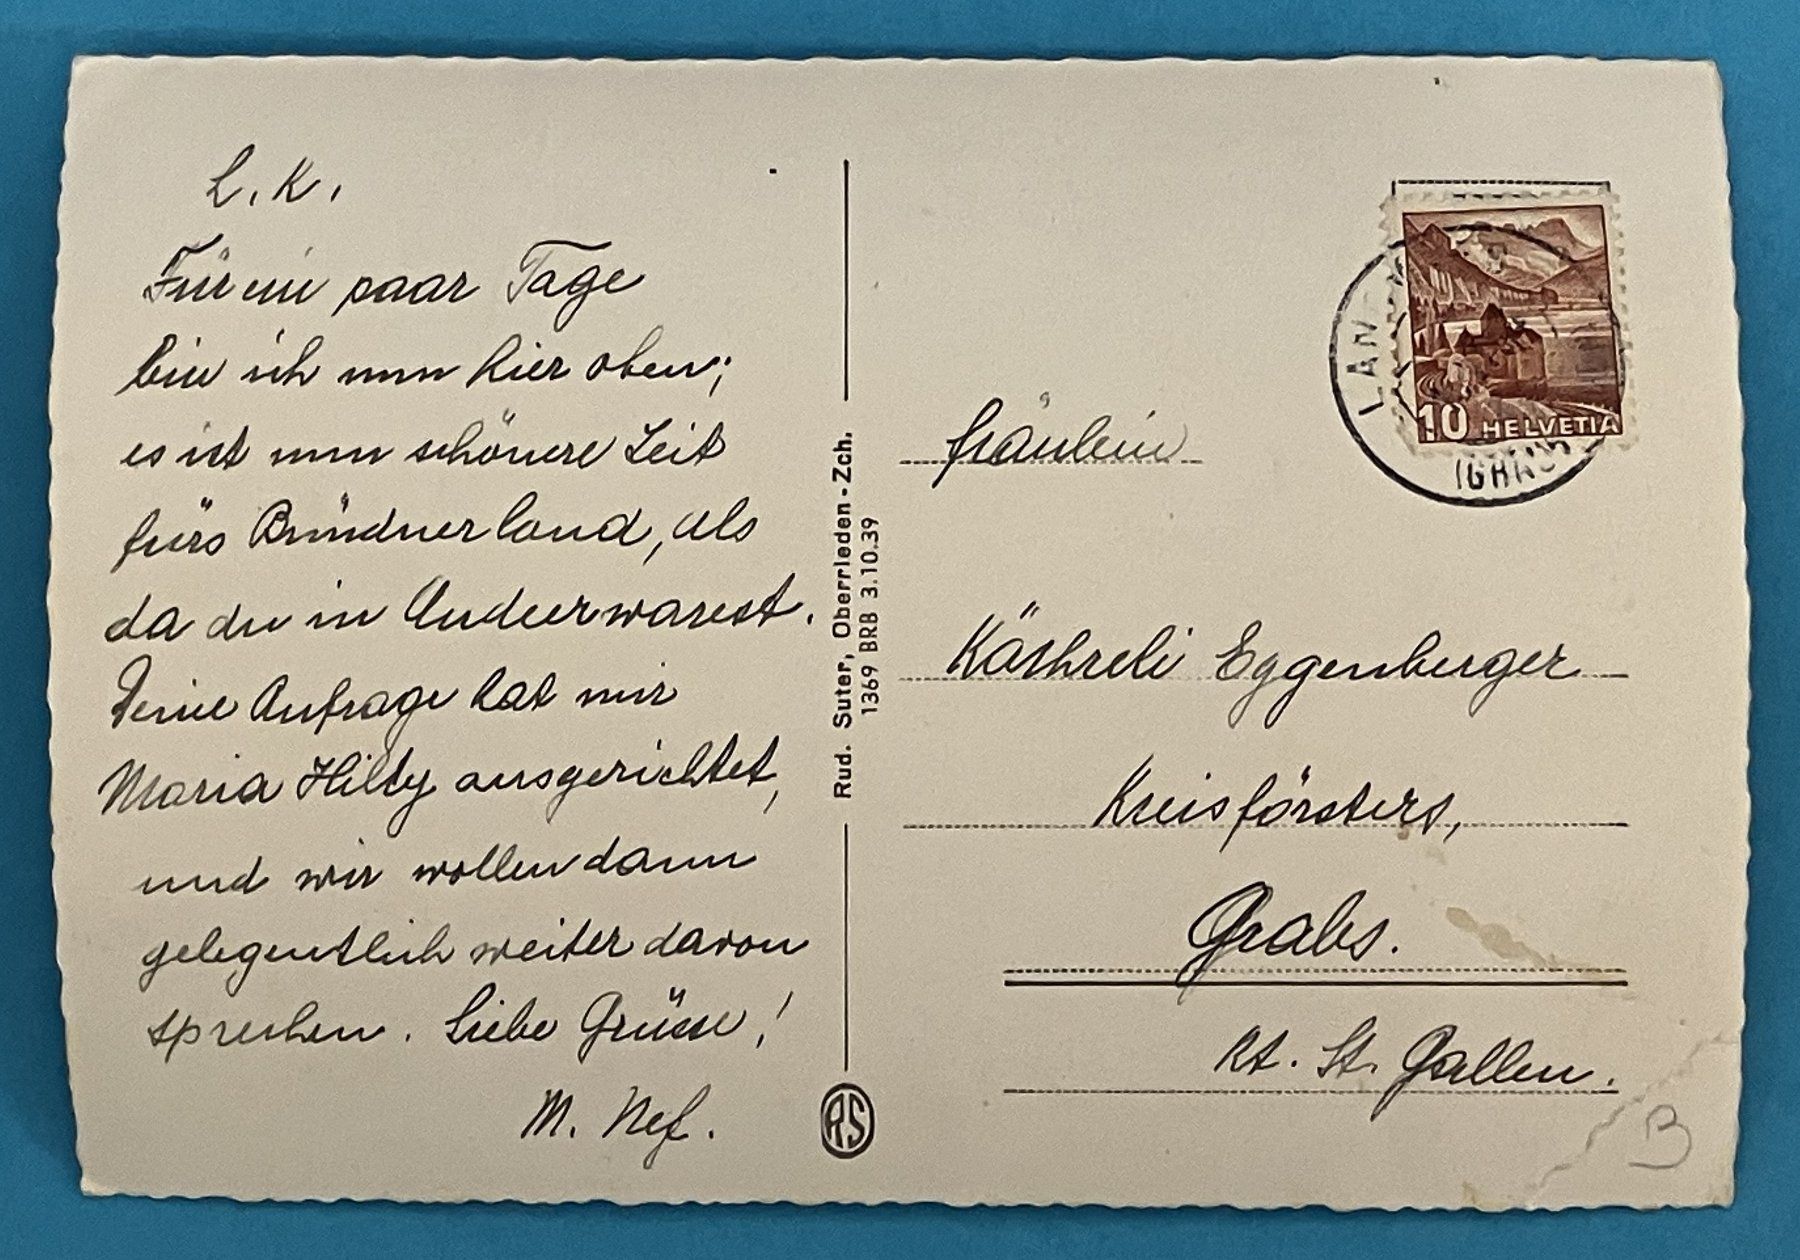 L. K.
Für ein paar Tage
bin ich nun hier oben;
es ist nun schönere Zeit
fürs Bündnerland, als
da du in Andeer warest.
Deine Anfrage hat mir
Maria Hilty ausgerichtet,
und wir wollen dann
gelegentlich weiter davon
sprechen. Liebe Grüsse!
M. Nef.
Rud. Suter, Oberrieden-Zch.
1369 BRB 3.10.39
RS
10 HELVETIA
Fräulein
Käthreli Eggenberger
Kreisförsters,
Grabs.
Kt. St. Gallen.
B